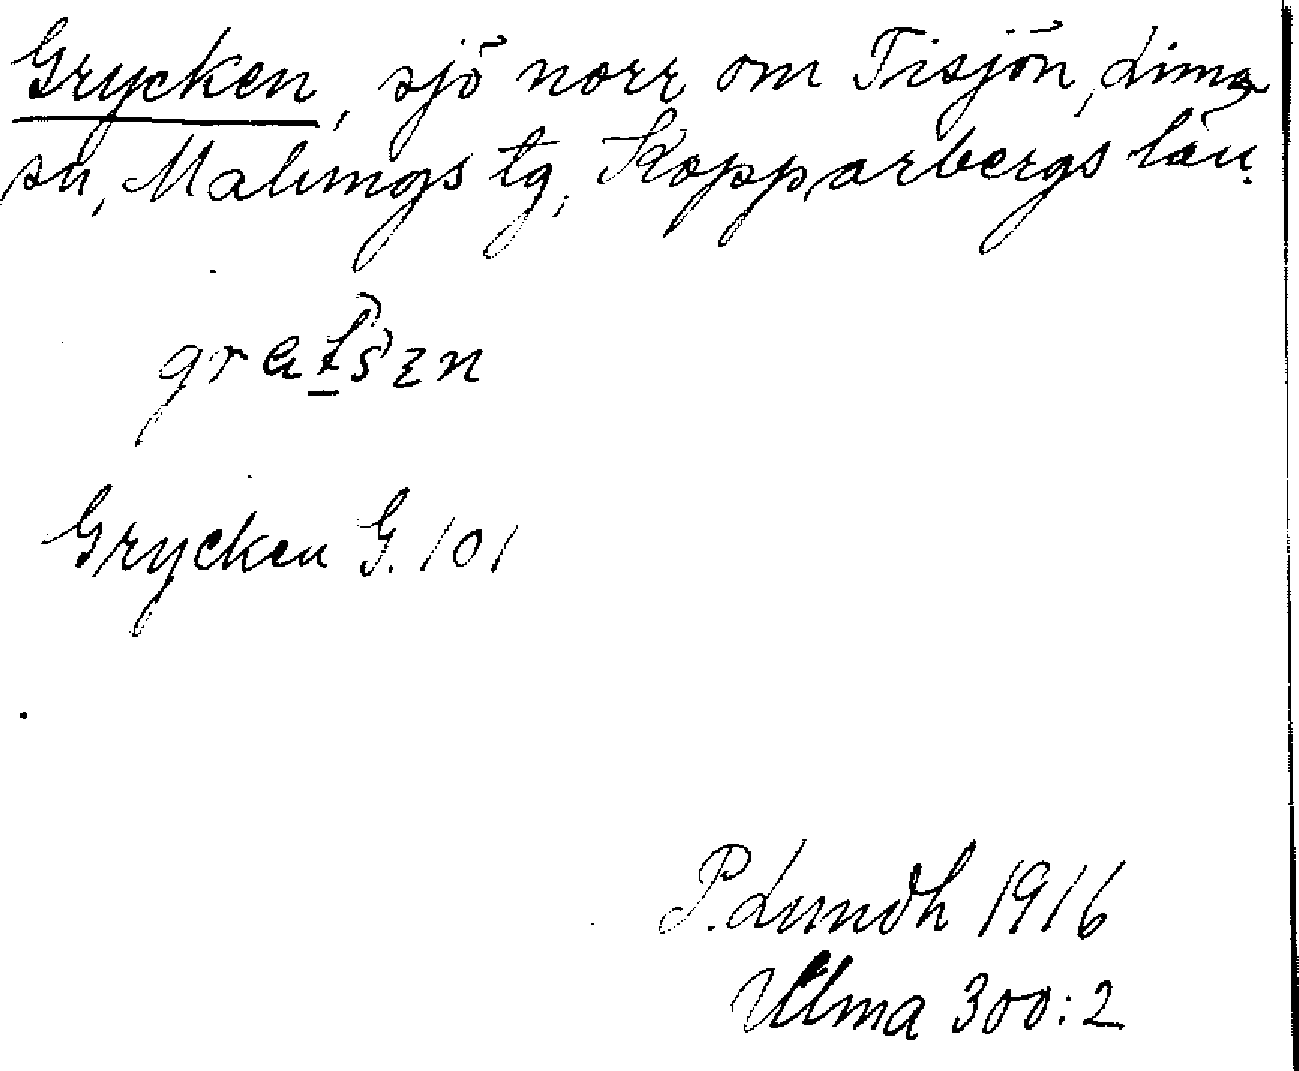 Grycken, sjö norr om Tisjön, Lima
sn, Malungs tg, Kopparbergs län.
Grycken G. 101
P. Lundh 1916
Ulma 300:2